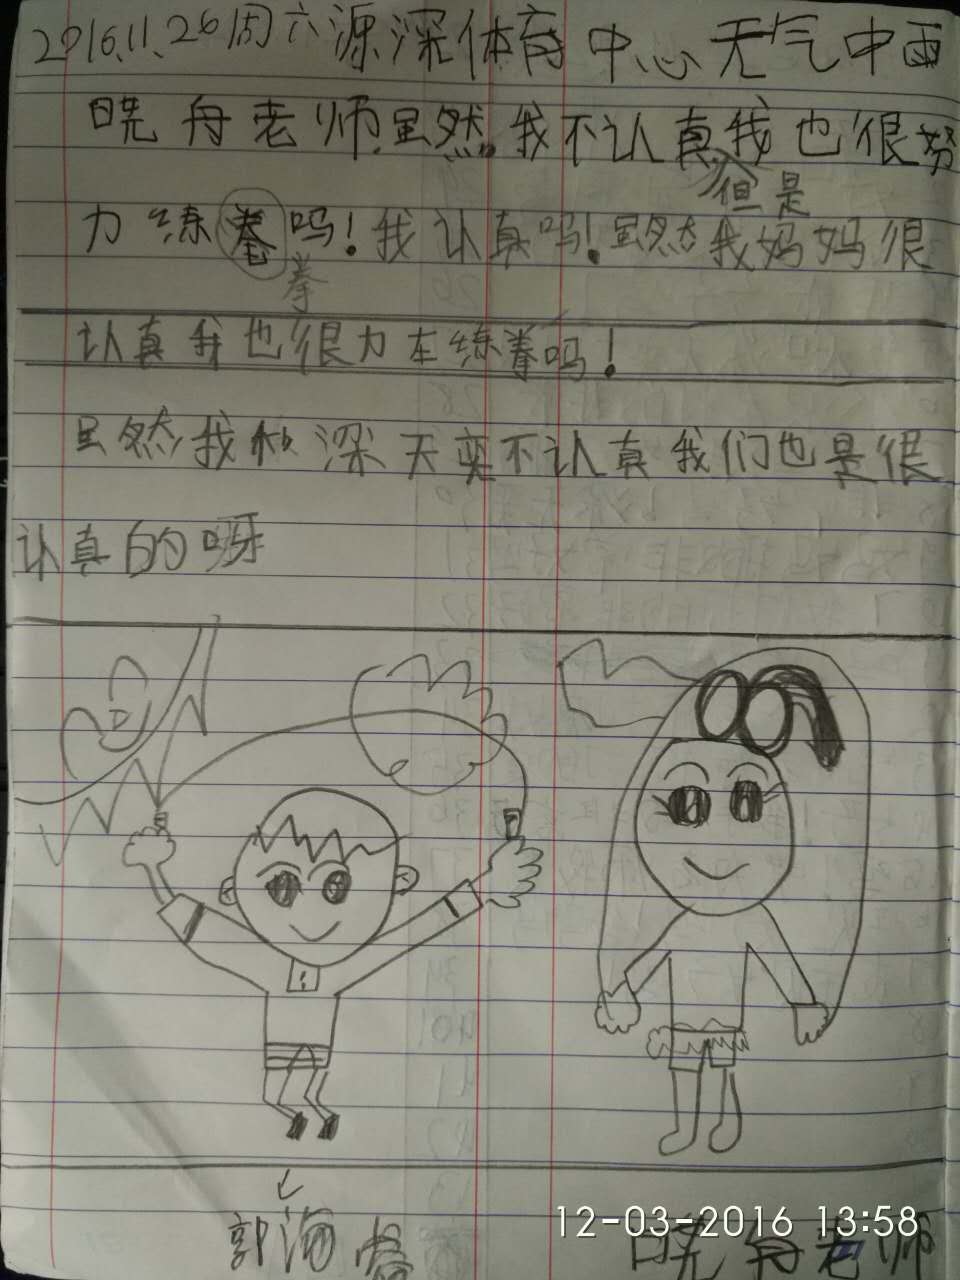 2016.11.26周六源深体育中心天气中雨
晓舟老师虽然我不认真我也很努
但是
力练拳吗!我认真吗!虽然我妈妈很
拳
认真我也很力在练拳吗!
虽然我和深天奕不认真我们也是很
认真的呀
郭海 晓舟老师
12-03-2016 13:58